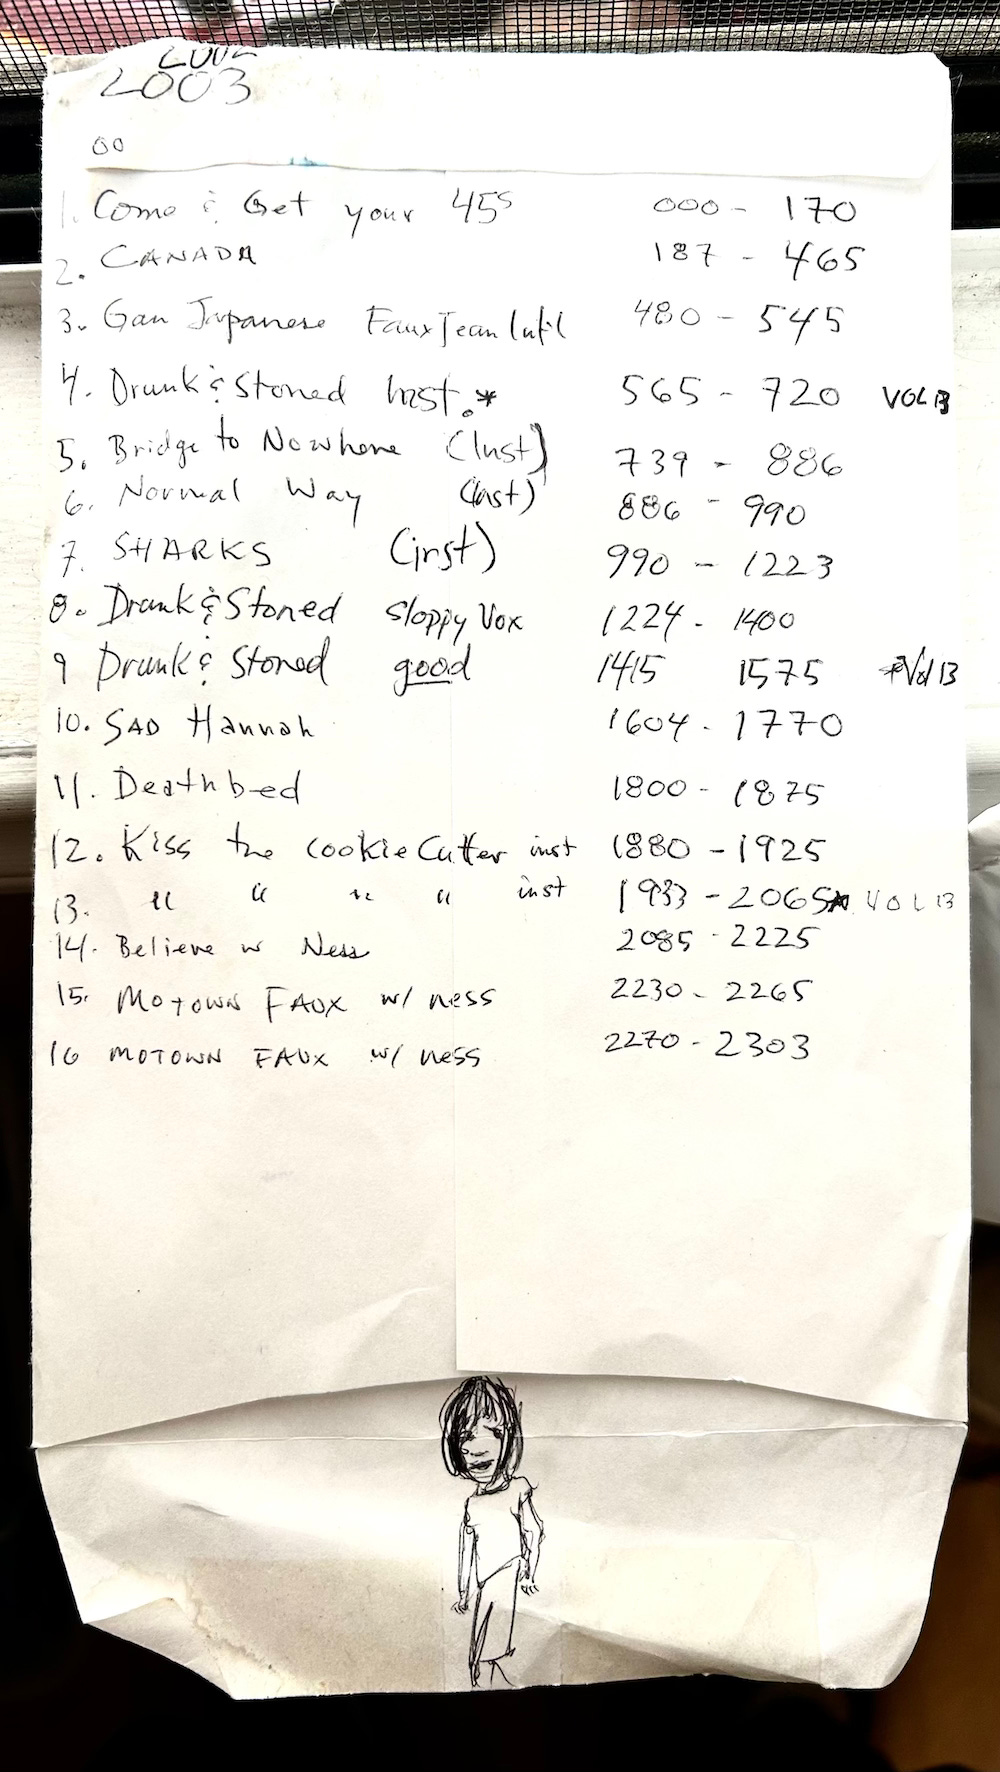 2002
2003
00
1. Come & Get your 45s 000 - 170
2. CANADA 187 - 465
3. Gan Japanese Faux Jean Int'l 480 - 545
4. Drunk & Stoned inst.* 565 - 720 VOL 13
5. Bridge to Nowhere (Inst) 739 - 886
6. Normal Way (inst) 886 - 990
7. SHARKS (inst) 990 - 1223
8. Drunk & Stoned sloppy Vox 1224 - 1400
9 Drunk & Stoned good 1415 1575 *Vol 13
10. SAD Hannah 1604 - 1770
11. Deathbed 1800 - 1875
12. Kiss the cookie Cutter inst 1880 - 1925
13. " " " " inst 1933 - 2065* VOL 13
14. Believe w Ness 2085 - 2225
15. MOTOWN FAUX w/ ness 2230 - 2265
16 MOTOWN FAUX w/ ness 2270 - 2303